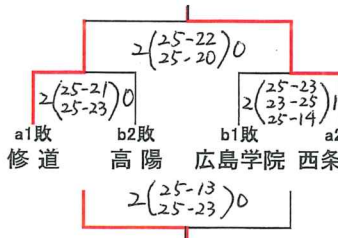 2(25-22 25-20)0
2(25-21 25-23)0
2(25-23 23-25 25-14)1
a1敗 b2敗 b1敗 a2
修道 高陽 広島学院 西条
2(25-13 25-23)0